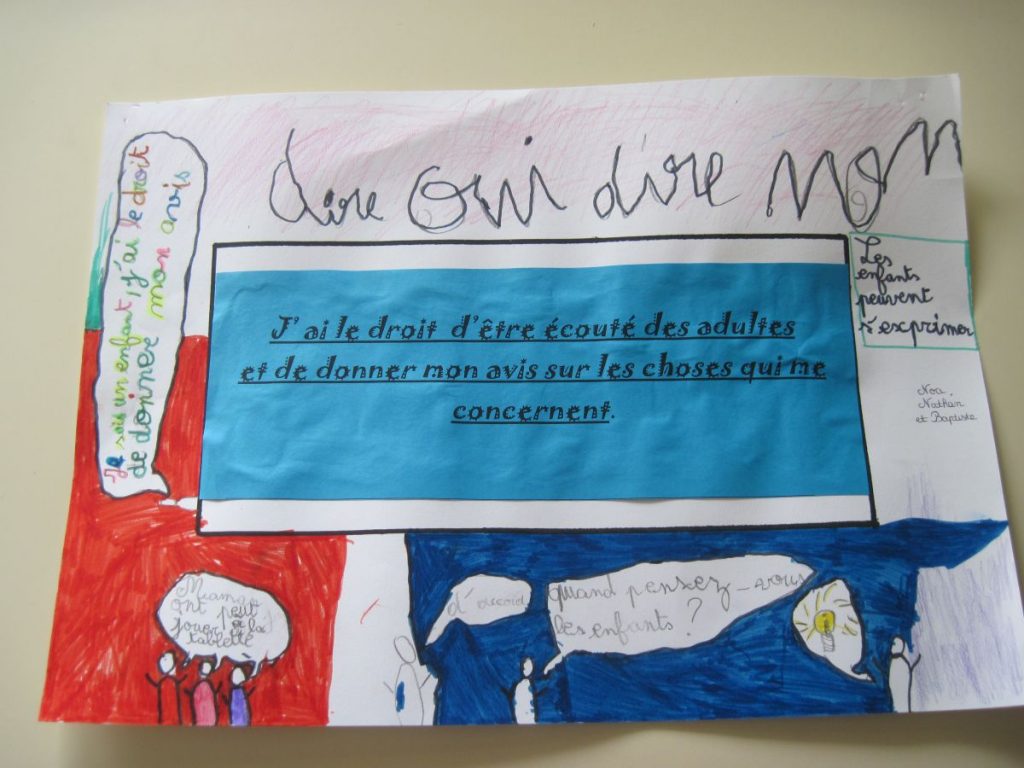 dire oui dire non
Je suis un enfant, j'ai le droit
de donner mon avis
J'ai le droit d'être écouté des adultes
et de donner mon avis sur les choses qui me
concernent.
Les
enfants
peuvent
s'exprimer
Noa,
Nathan
et Baptiste
Maman
ont peut
jouer a la
tablette
d'accord
quand pensez-vous
les enfants ?